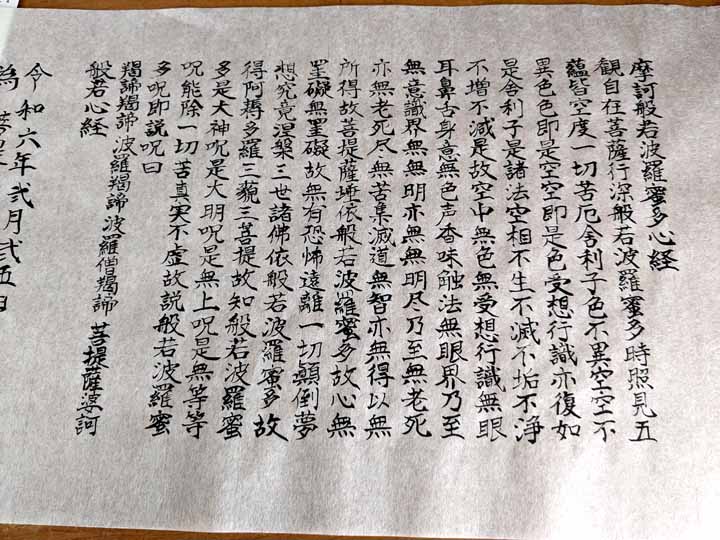 摩訶般若波羅蜜多心経
観自在菩薩行深般若波羅蜜多時照見五
蘊皆空度一切苦厄舎利子色不異空空不
異色色即是空空即是色受想行識亦復如
是舎利子是諸法空相不生不滅不垢不浄
不増不減是故空中無色無受想行識無眼
耳鼻舌身意無色声香味触法無眼界乃至
無意識界無無明亦無無明尽乃至無老死
亦無老死尽無苦集滅道無智亦無得以無
所得故菩提薩埵依般若波羅蜜多故心無
罣礙無罣礙故無有恐怖遠離一切顛倒夢
想究竟涅槃三世諸佛依般若波羅蜜多故
得阿耨多羅三藐三菩提故知般若波羅蜜
多是大神呪是大明呪是無上呪是無等等
呪能除一切苦真実不虚故説般若波羅蜜
多呪即説呪曰
羯諦羯諦波羅羯諦波羅僧羯諦 菩提薩婆訶
般若心経
令和六年弐月弐五日
為